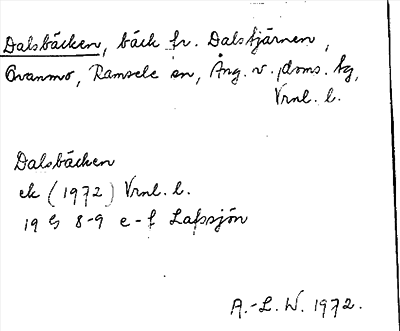 Dalsbäcken, bäck fr. Dalstjärnen,
Ovanmo, Ramsele sn, Ång. v. doms. tg,
Vrnl. l.
Dalsbäcken
ek (1972) Vrnl. l.
19 G 8-9 e-f Lafssjön
A.-L. W. 1972.